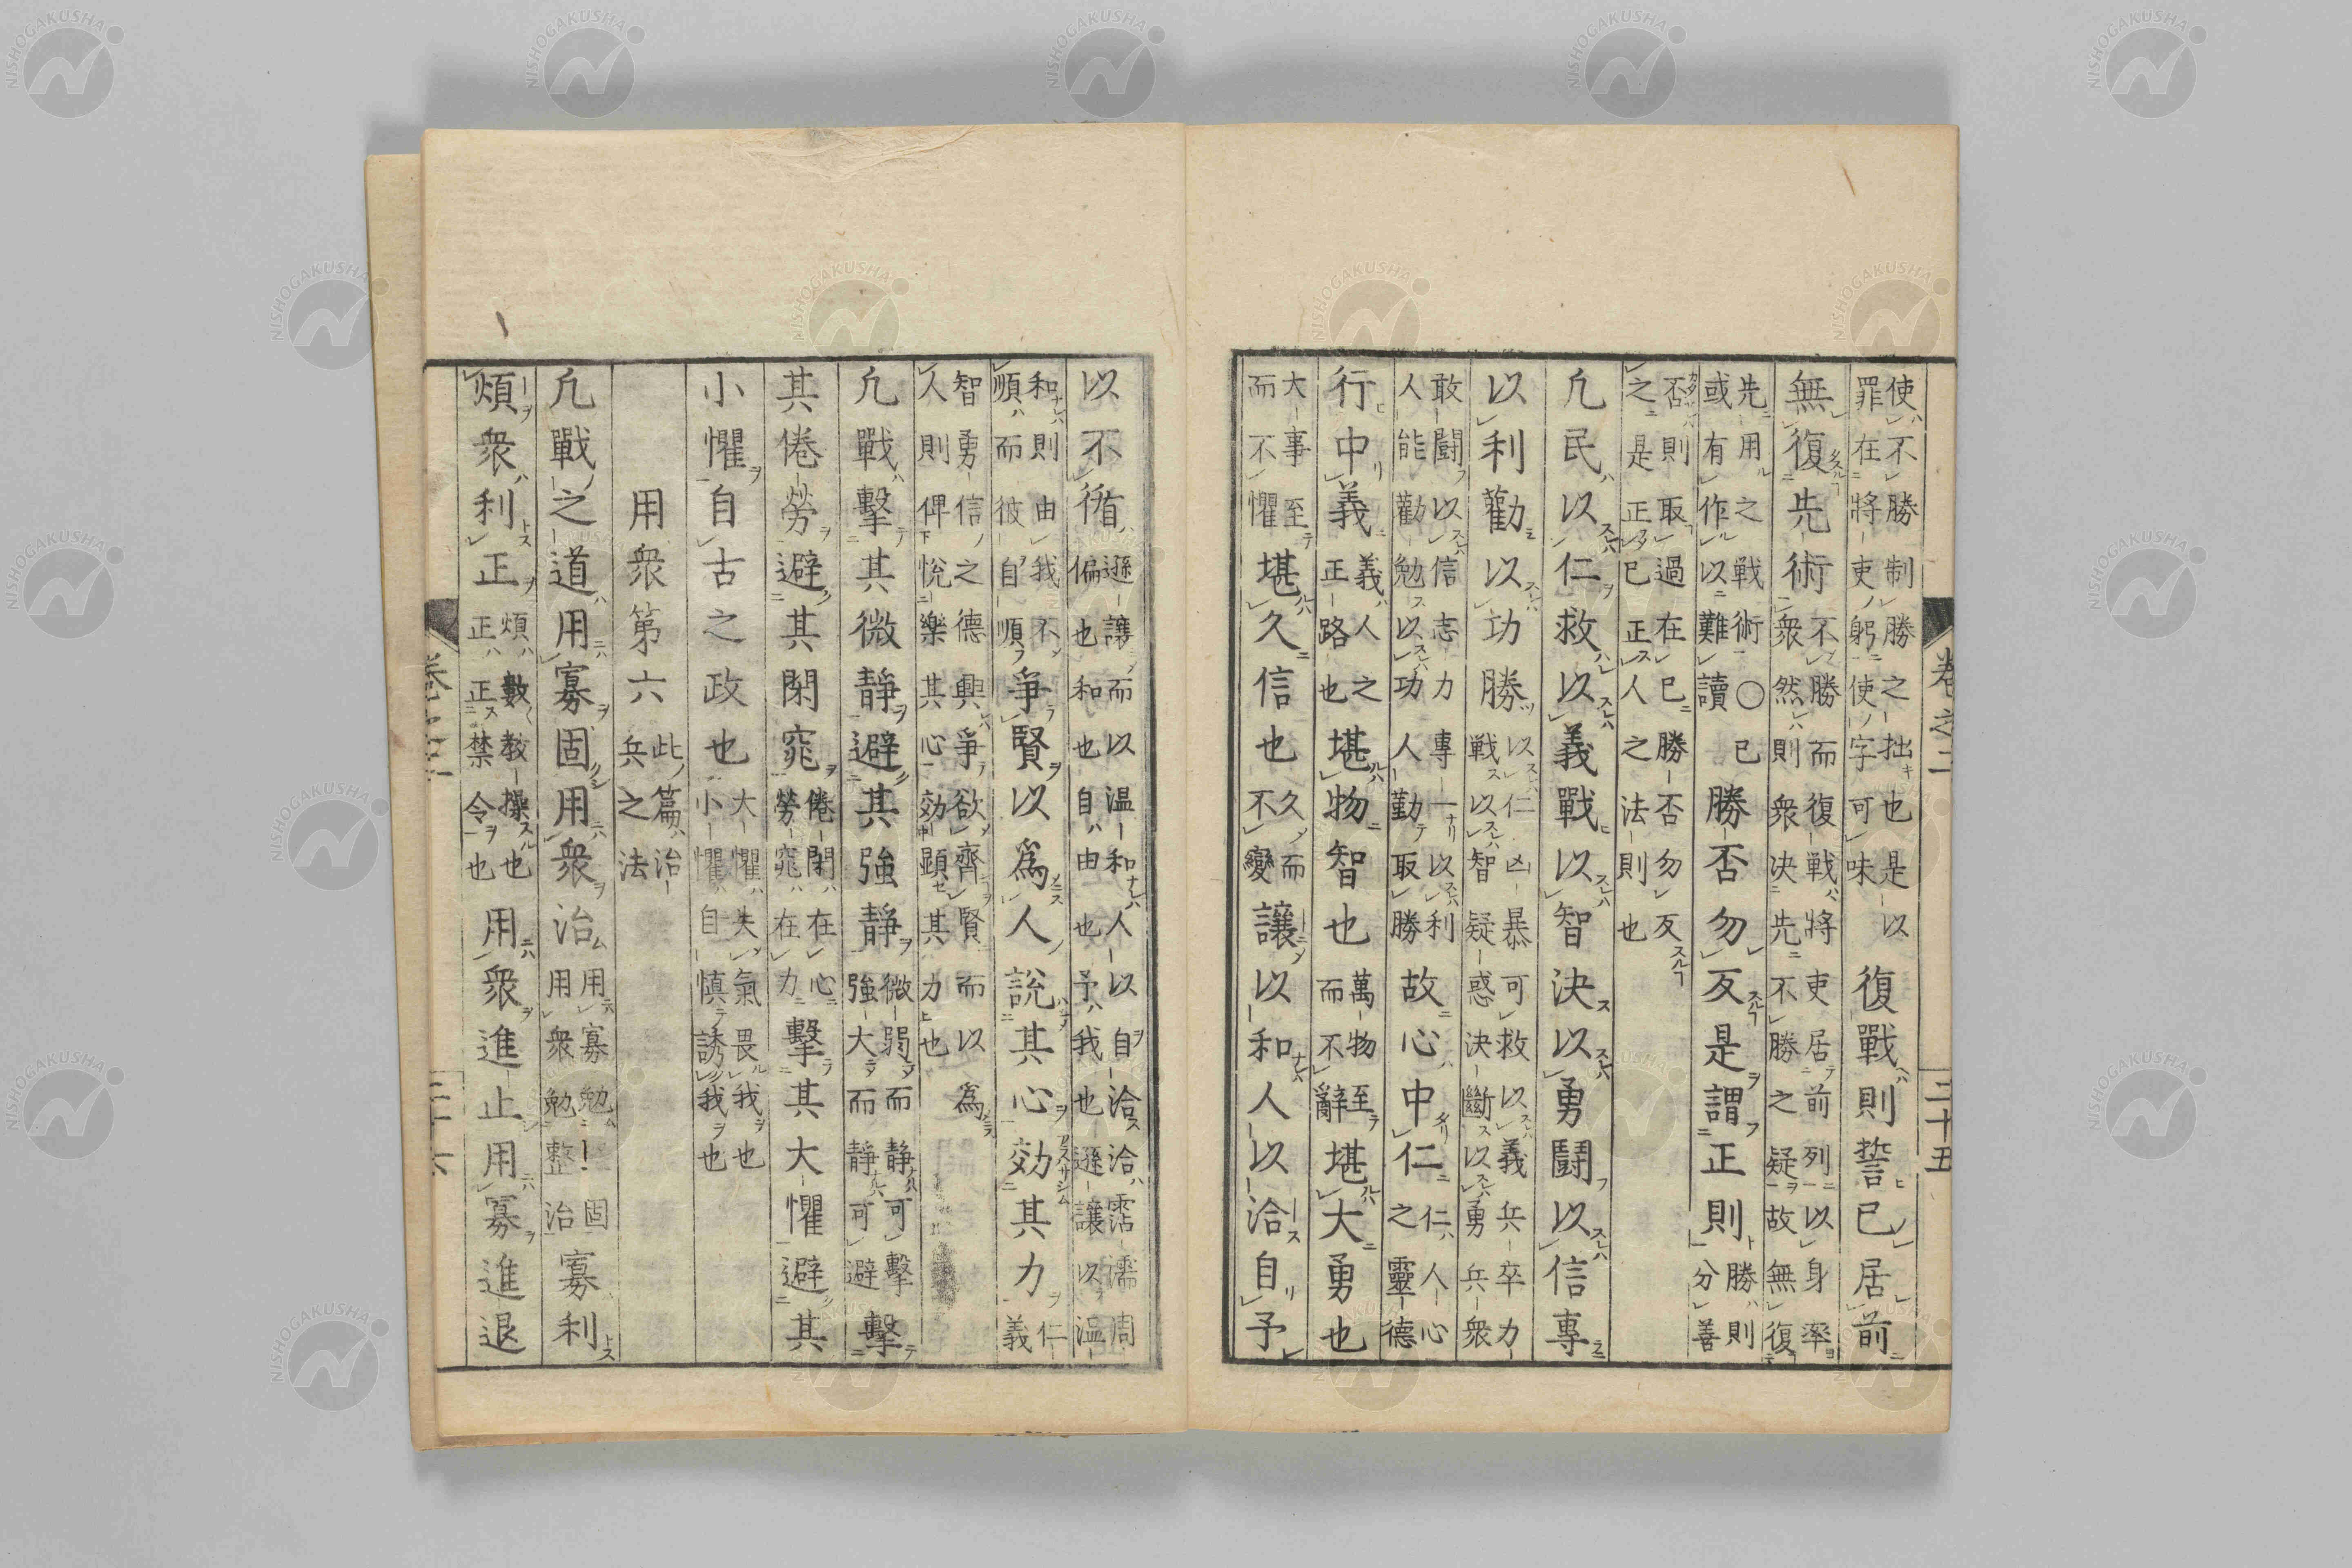 卷之二 三十五
使不勝制勝之拙也是以
罪在將吏躬使字可味
復戰則誓已居前
無復先術
不勝而復戦將吏居前列以身率
衆然則衆决先不勝之疑故無復
先用之戦術〇已
或有作以難讀
勝否勿反是謂正則
勝則
分善
否則取過在已勝否勿反
之是正已正人之法則也
凢民以仁救以義戰以智決以勇鬪以信專
以利勸以功勝
以仁凶暴可救以義兵卒力
戦以智疑惑決斷以勇兵衆
敢闘以信志力專一以利
人能勸勉以功人勤取勝
故心中仁
仁人心
之靈德
行中義
義人之
正路也
堪物智也
萬物至
而不辭
堪大勇也
大事至
而不懼
堪久信也
久而
不變
讓以和人以洽自予
以不循
遜讓而以温和人以自洽洽霑濡周
偏也和也自由也予我也遜讓以温
和則由我不
順而彼自順
爭賢以爲人說其心効其力
仁
義
智勇信之德興爭欲齊賢而以爲
人則俾悅樂其心効顕其力也
凢戰擊其微靜避其強靜
微弱而静可擊
強大而静可避
擊
其倦勞避其閑窕
倦閑在心
勞窕在力
擊其大懼避其
小懼自古之政也
大懼失氣畏我也
小懼自慎誘我也
用衆第六
此篇治
兵之法
凢戰之道用寡固用衆治
用寡勉固
用衆勉整治
寡利
煩衆利正
煩數教操也
正正禁令也
用衆進止用寡進退
NISHOGAKUSHA